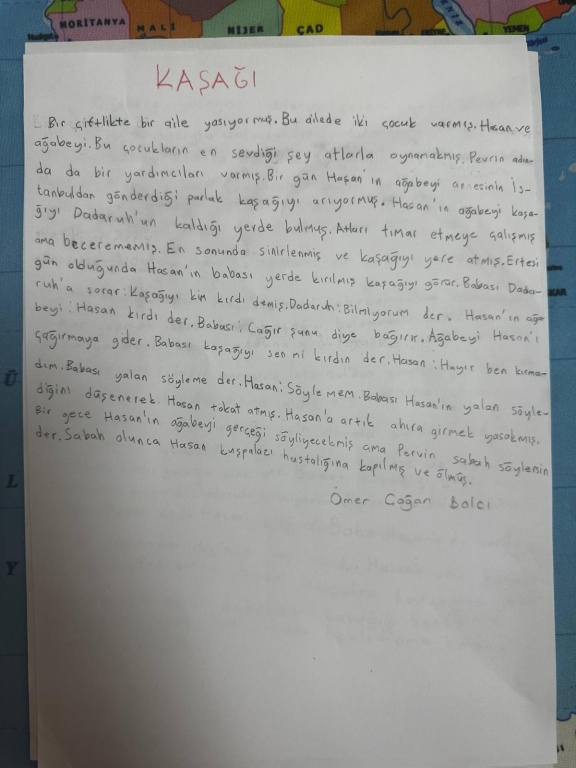 MORİTANYA
MALİ
NİJER
ÇAD
YEMEN
KAŞAĞI
Bir çiftlikte bir aile yaşıyormuş. Bu ailede iki çocuk varmış. Hasan ve
ağabeyi. Bu çocukların en sevdiği şey atlarla oynamakmış. Pevrin adın-
da da bir yardımcıları varmış. Bir gün Hasan'ın ağabeyi annesinin İs-
tanbuldan gönderdiği parlak kaşağıyı arıyormuş. Hasan'ın ağabeyi kaşa-
ğıyı Dadaruh'un kaldığı yerde bulmuş. Atları tımar etmeye çalışmış
ama becerememiş. En sonunda sinirlenmiş ve kaşağıyı yere atmış. Ertesi
gün olduğunda Hasan'ın babası yerde kırılmış kaşağıyı görür. Babası Dada-
ruh'a sorar: Kaşağıyı kim kırdı demiş. Dadaruh: Bilmiyorum der. Hasan'ın ağa-
beyi: Hasan kırdı der. Babası: Çağır şunu diye bağırır. Ağabeyi Hasan'ı
çağırmaya gider. Babası kaşağıyı sen mi kırdın der. Hasan: Hayır ben kırma-
dım. Babası yalan söyleme der. Hasan: Söylemem. Babası Hasan'ın yalan söyle-
diğini düşenerek Hasan tokat atmış. Hasan'a artık ahıra girmek yasakmış.
Bir gece Hasan'ın ağabeyi gerçeği söyliyecekmiş ama Pervin sabah söylersin
der. Sabah olunca Hasan kuşpalazı hastalığına kapılmış ve ölmüş.
Ömer Çağan Balcı
Ü
L
Y